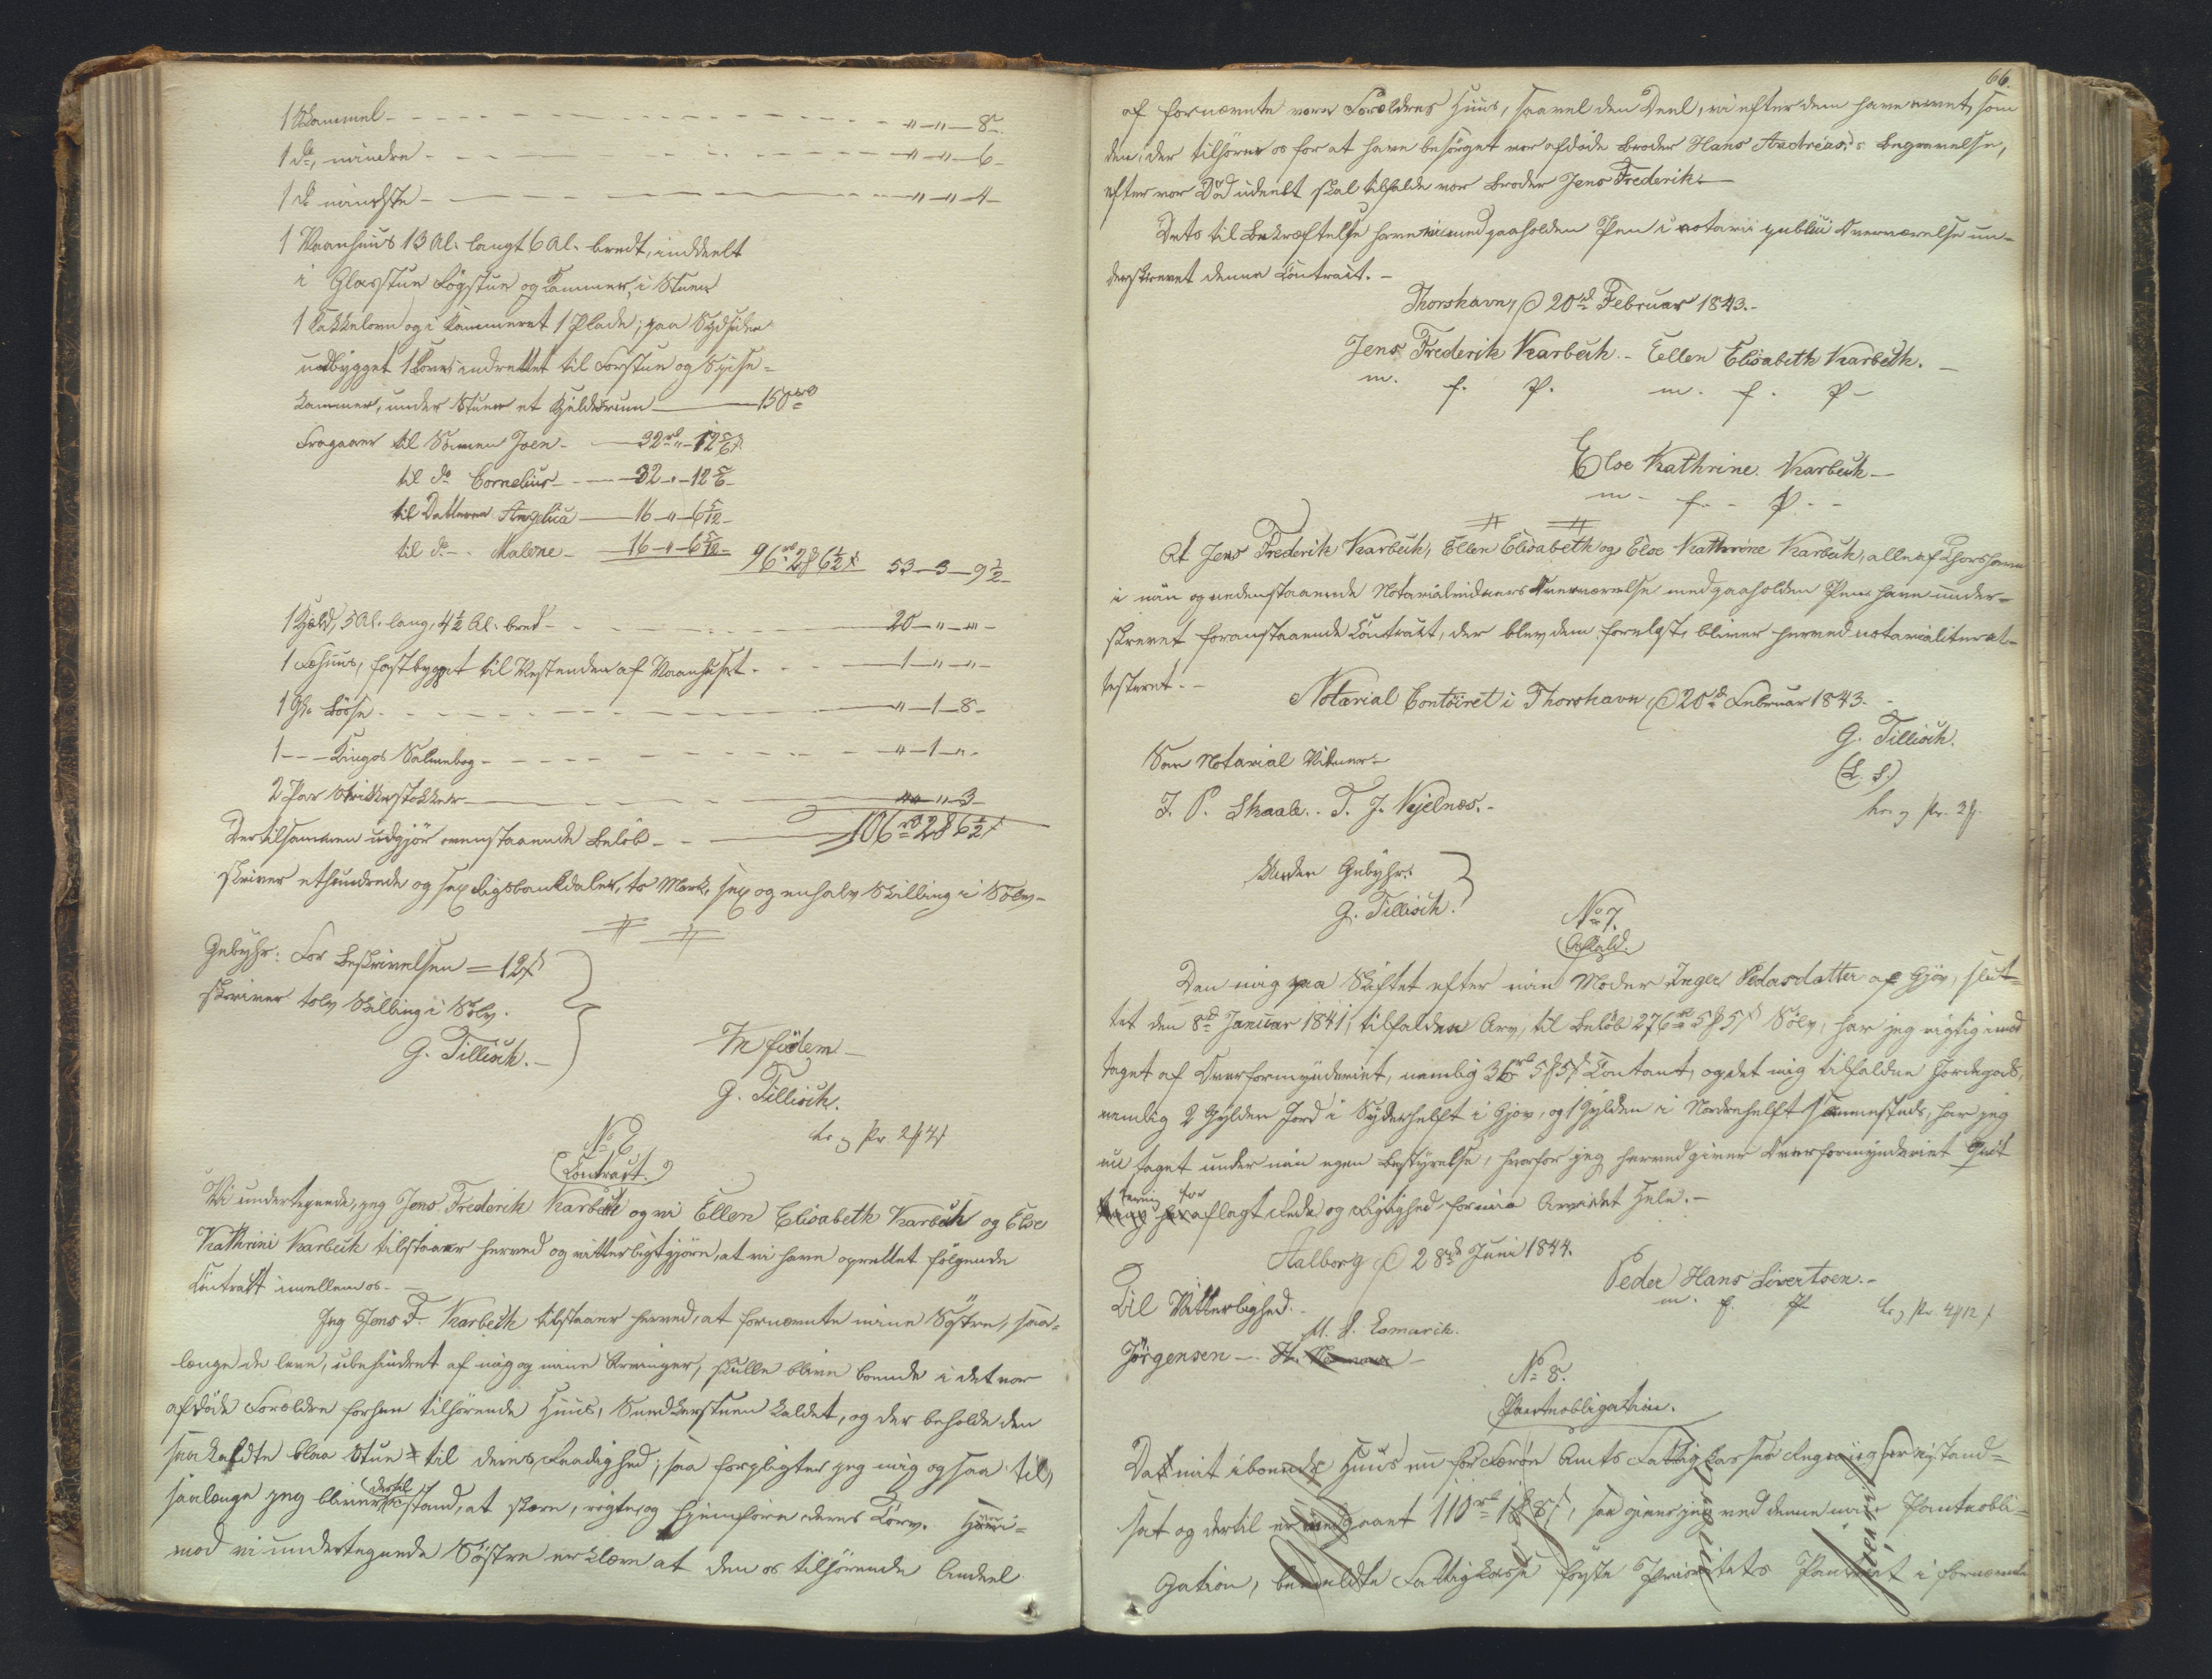 1 Skammel - - - - „ - „ - 8 -
1 do, mindre - - - „ - „ - 6 -
1 do mindste - - - „ - „ - 4 -
1 Vaanhuus 13 Al. langt 6 Al. bredt, inddeelt
i Glasstue Rögstue og Kammer, i Stuen
1 Kakkelovn og i Kammeret 1 Plade; paa Sydsiden
udbygget 1 indrettet til Forstue og Spise-
kammer, under Stuen et Kjelderrum - 150 rbd
Fragaaer til Sönnen Joen - 32 rd „ - 12
til do Cornelius - 32 - „ - 12
til Datteren Angelica - 16 - „ - 6
til do - Malene - 16 - „ - 6 96 rd 2 ß 6½ 53 - 3 - 9½ -
1 Hjeld, 5 Al. lang, 4½ Al. bred - 20 - „ - „ -
1 Fæhuus, fastbygget til Vestenden af Vaanhuset - 1 - „ - „ -
1 Gl. Bösse - „ - 1 - 8 -
1 - - - Kingos Salmebog - „ - 1 - „ -
2 Par Strikkestokker - „ - „ - 3 -
Der tilsammen udgjör ovenstaaende Belöb - 106 rbd 2 ß 6½
skriver ethundrede og sex Rigsbankdaler, to Mark, sex og enhalv Skilling i Sölv -
Gebyhr: For Beskrivelsen = 12 ß
skriver tolv Skilling i Sölv.
G. Tillisch. -
In fidem -
G. Tillisch.
No 6
Contract.
Vi undertegnede, jeg Jens Frederik Karbech og vi Ellen Elisabeth Karbech og Else
Kathrini Karbech tilstaaer herved og vitterligtgjöre, at vi have oprettet fölgende
Contract imellem os. -
Jeg Jens F. Karbech tilstaaer herved, at fornævnte mine Söstre, saa-
længe de leve, ubehindret af mig og mine Arvinger, skulle blive boende i det vor
afdöde Forældre forhen tilhörende Huus, kaldet, og der beholde den
saakaldte blaa Stue til deres Raadighed; saa forpligter jeg mig ogsaa til,
saalænge jeg bliver dertil istand, at skære, rögte, og hjemföre deres Törv. Hvori-
mod vi undertegnede Söstre erklære at den os tilhörende Andeel
66.
af fornævnte vore Forældres Huus, saavel den Deel, vi efter dem have arvet, som
den, der tilhörer os for at have besörget vor afdöde Broder Hans Andreas's Begravelse,
efter vor Död udeelt skal tilfalde vor Broder Jens Frederik. -
Dets til Bekræftelse have vi medpaaholden Pen i notarii publici Overværelse un-
derskrevet denne Contract. -
Thorshavn, d 20de Februar 1843. -
Jens Frederik Karbech. - Ellen Elisabeth Karbech. -
m. f. P. m. f. P -
Else Kathrine Karbech -
m - f. - P. -
At Jens Frederik Karbech, Ellen Elisabeth og Else Kathrine Karbech, alle af Thorshavn
i min og nedenstaaende Notarialvidners Overværelse medpaaholden Pen have under-
skrevet foranstaaende Contract, der blev dem forelæst, bliver herved notarialiter at-
testeret. -
Notarial Contoiret i Thorshavn, d 20de Februar 1843. -
G. Tillisch.
(L. S.)
Som Notarial Vidner -
J. P. Skaale. T. J. Vejelnes. -
Uden Gebyhr.
G. Tillisch.
No 7.
Afkald.
Den mig paa Skiftet efter min Moder Inger Pedersdatter af Gjov, slut-
tet den 8de Januar 1841, tilfaldne Arv, til Belöb 276 rd 5 ß 5 Sölv, har jeg rigtig imod
taget af Overformynderiet, nemlig 36 rd 5 ß 5 Contant, og det mig tilfaldne Jordegods,
nemlig 2 Gylden Jord i Syderhelft i Gjov, og 1 Gylden i Nordrehelft sammesteds, har jeg
nu taget under min egen Bestyrelse, hvorfor jeg herved giver Overformynderiet Quit
tering for aflagt Rede og Rigtighed for min Arv i det Hele. -
Aalborg d 28de Juni 1844.
Peder Hans Sivertsen. -
m. f. P
Til Vitterlighed. -
M. S. Esmarck.
Jörgensen -
No 8.
Pantobligation.
Da mit iboende Huus nu for Færöe Amts Fattigkasses Regning er istand-
sat og dertil er medgaaet 110 rd 1 ß 8, saa giver jeg ved denne min Pantobli-
gation, bemeldte Fattigkasse förste Prioritets Panteret i fornævnte